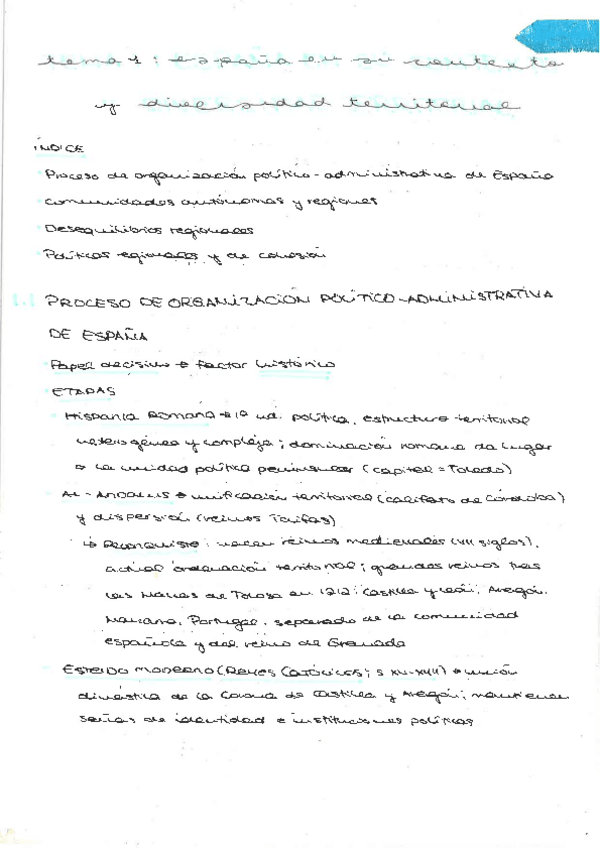 tema 1: españa en su contexto
y diversidad territorial
ÍNDICE
Proceso de organización político-administrativa de España
comunidades autónomas y regiones
Desequilibrios regionales
Políticas regionales y de cohesión
1.1 PROCESO DE ORGANIZACIÓN POLÍTICO-ADMINISTRATIVA
DE ESPAÑA
Papel decisivo → factor histórico
ETAPAS
Hispania Romana → 1ª ud. política, estructura territorial
heterogénea y compleja; dominación romana da lugar
a la unidad política peninsular (capital = Toledo)
AL-ANDALUS → unificación territorial (califato de Córdoba)
y dispersión (reinos Taifas)
↳ Reconquista: nacen reinos medievales (VII siglos),
actual ordenación territorial; grandes reinos tras
las Navas de Tolosa en 1212: Castilla y León, Aragón,
Navarra, Portugal, separado de la comunidad
española y del reino de Granada
ESTADO MODERNO (Reyes Católicos; s XV-XVII) → unión
dinástica de la Corona de Castilla y Aragón; mantienen
señas de identidad e instituciones políticas